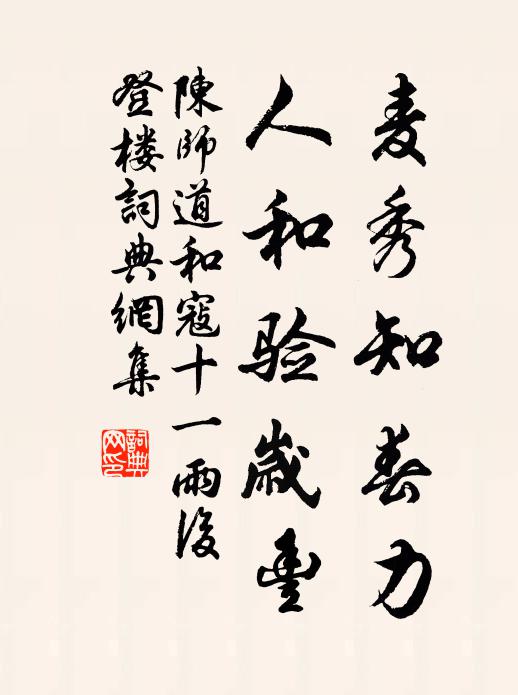 麦秀知春力
人和验歲豊
陳師道和寇十一雨後
登楼詞典網集
詞典
网印